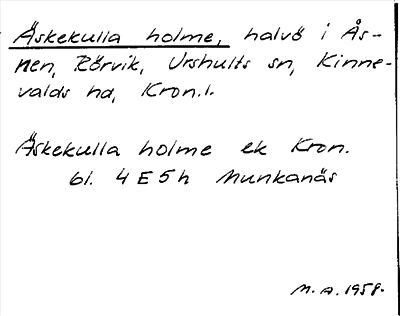 Äskekulla holme, halvö i Ås-
nen, Rörvik, Urshults sn, Kinne-
valds hd, Kron.l.
Äskekulla holme ek Kron.
bl. 4 E 5 h Munkanäs
M. A. 1958.